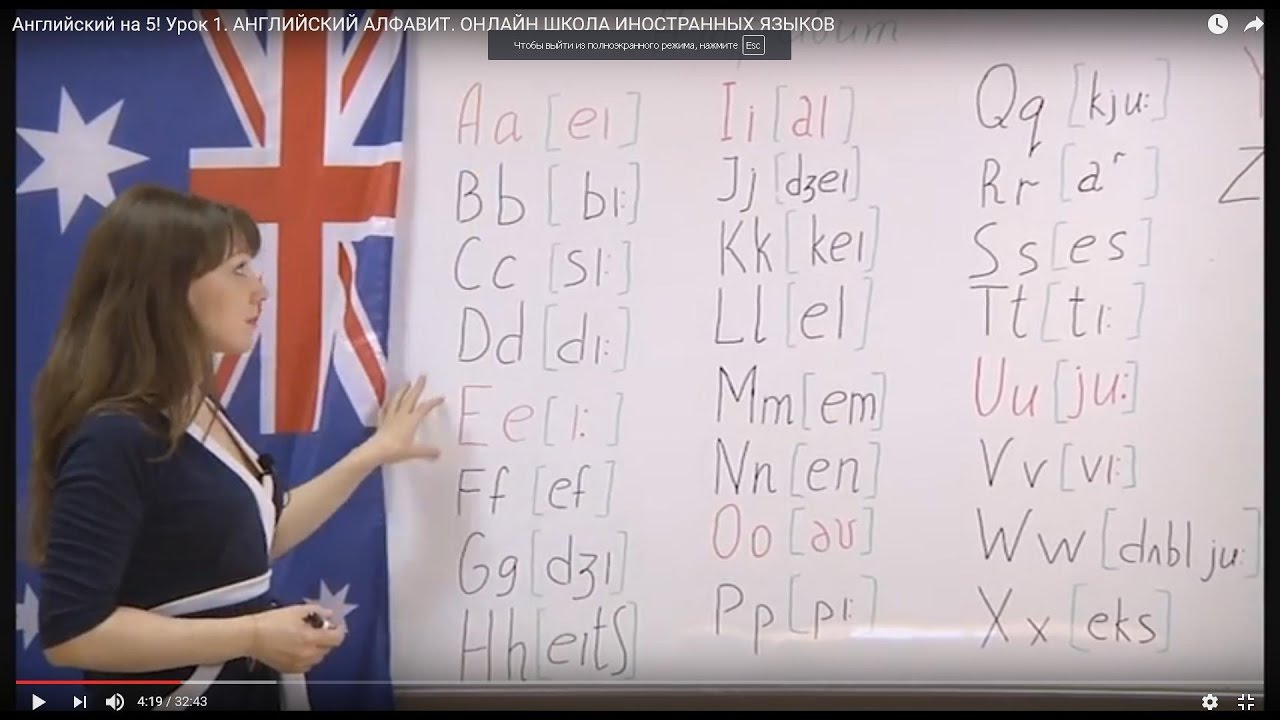 Английский на 5! Урок 1. АНГЛИЙСКИЙ АЛФАВИТ. ОНЛАЙН ШКОЛА ИНОСТРАННЫХ ЯЗЫКОВ
Чтобы выйти из полноэкранного режима, нажмите Esc
Aa [eı]
Bb [bı:]
Cc [sı:]
Dd [dı:]
Ee [ı:]
Ff [ef]
Gg [dʒı]
Hh [eıtʃ]
Ii [aı]
Jj [dʒeı]
Kk [keı]
Ll [el]
Mm [em]
Nn [en]
Oo [əʊ]
Pp [pı:]
Qq [kju:]
Rr [a r]
Ss [es]
Tt [tı:]
Uu [ju:]
Vv [vı:]
Ww [dʌbl ju:]
Xx [eks]
Z
4:19 / 32:43